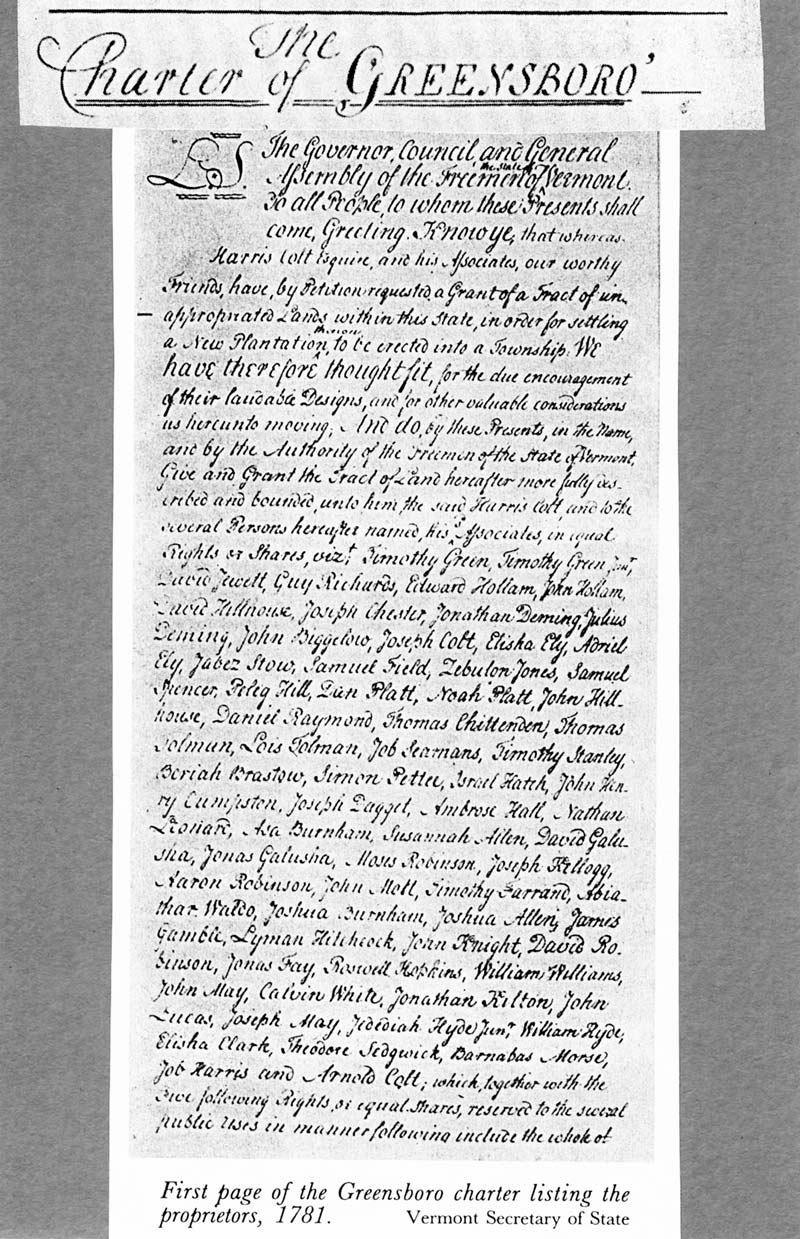 The
Charter of GREENSBORO'
LS. The Governor, Council, and General
Assembly of the Freemen of the State of Vermont.
To all People, to whom these Presents shall
come, Greeting. Know ye, that whereas
Harris Colt Esquire, and his Associates, our worthy
Friends, have, by Petition requested a Grant of a Tract of un-
appropriated Lands within this State, in order for settling
a New Plantation, thereon to be erected into a Township: WE
have therefore thought fit, for the due encouragement
of their laudable Designs, and for other valuable considerations
us hereunto moving; And do, by these Presents, in the Name,
and by the Authority of the Freemen of the State of Vermont,
Give and Grant the Tract of Land hereafter more fully des-
cribed and bounded, unto him the said Harris Colt, and to the
several Persons hereafter named, his Associates, in equal
Rights or Shares, vizt. Timothy Green, Timothy Green Junr,
David Jewett, Guy Richards, Edward Hollam, John Hollam,
David Hillhouse, Joseph Chester, Jonathan Deming, Julius
Deming, John Biggelow, Joseph Colt, Elisha Ely, Adriel
Ely, Jabez Stow, Samuel Field, Zebulon Jones, Samuel
Spencer, Peleg Hill, Dan Platt, Noah Platt, John Hill-
house, Daniel Raymond, Thomas Chittenden, Thomas
Tolman, Lois Tolman, Job Seamans, Timothy Stanley,
Beriah Brastow, Simon Pettee, Israel Hatch, John Hen-
ry Cumpston, Joseph Dagget, Ambrose Hall, Nathan
Leonard, Asa Burnham, Susannah Allen, David Galu-
sha, Jonas Galusha, Moses Robinson, Joseph Kellogg,
Aaron Robinson, John Mott, Timothy Farrand, Abia-
thar Waldo, Joshua Burnham, Joshua Allen, James
Gamble, Lyman Hitchcock, John Knight, David Ro-
binson, Jonas Fay, Roswell Hopkins, William Williams,
John May, Calvin White, Jonathan Kilton, John
Lucas, Joseph May, Jedidiah Hyde Junr. William Hyde,
Elisha Clark, Theodore Sedgwick, Barnabas Morse,
Job Harris and Arnold Colt; which, together with the
five following Rights, or equal Shares, reserved to the several
public Uses in manner following include the whole of
First page of the Greensboro charter listing the
proprietors, 1781. Vermont Secretary of State